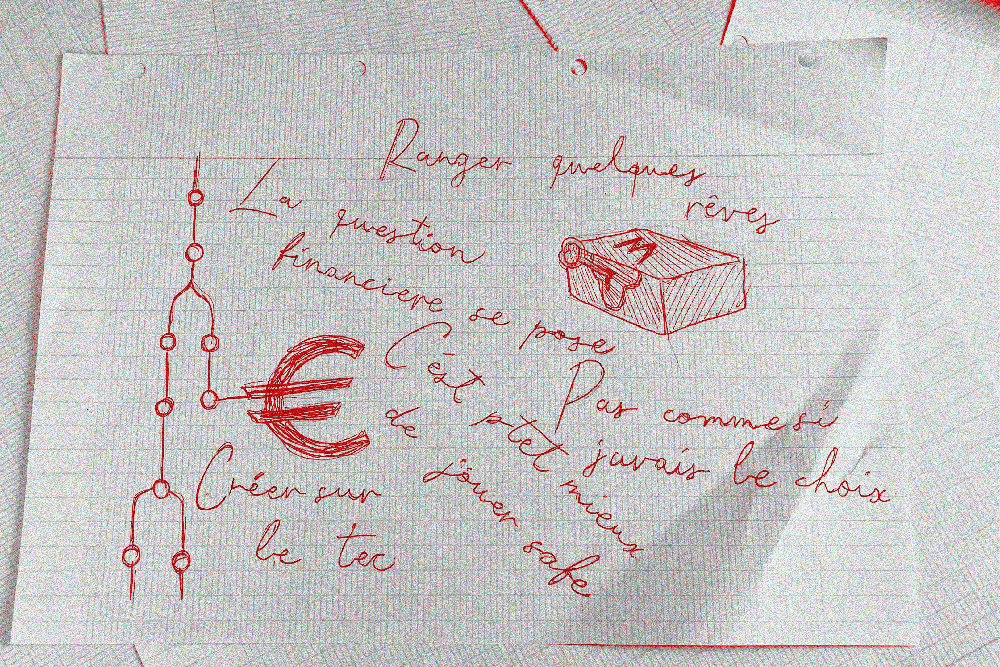 Ranger quelques
rêves
La question
financiere se pose
M
€
C'est ptet mieux
de jouer safe
Pas comme si
javais le choix
Créer sur
le tec